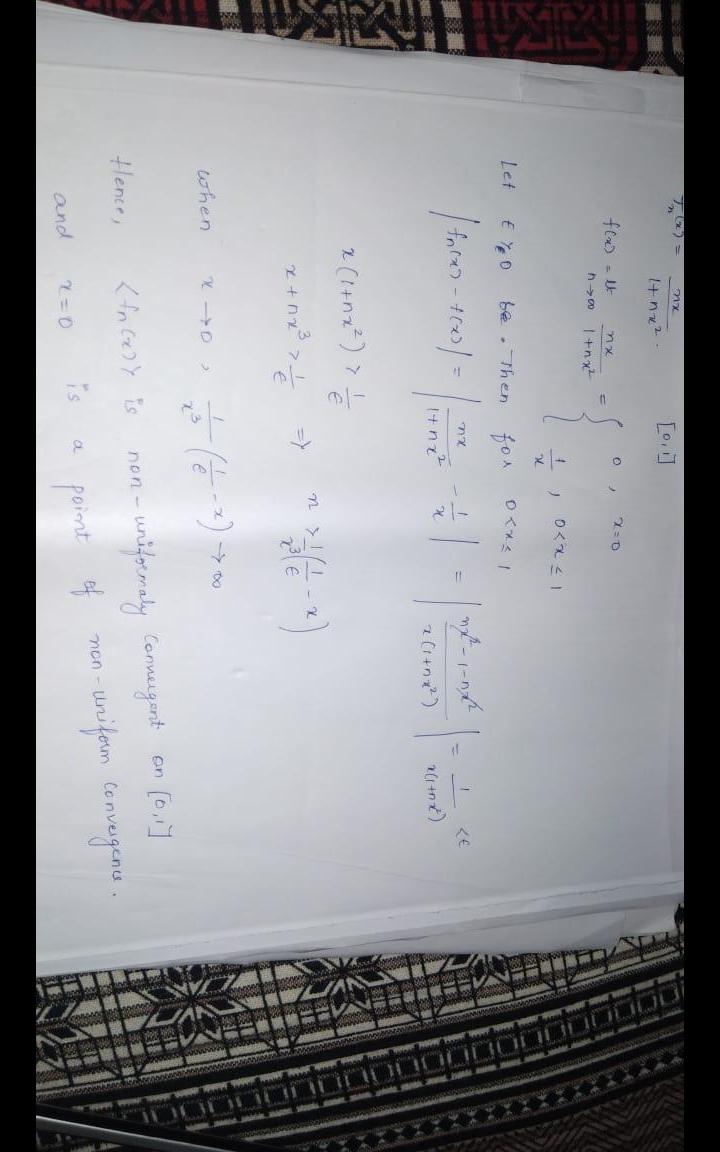 fn(x) = nx / 1+nx². [0,1]
f(x) = lt n→∞ nx / 1+nx² = { 0 , x=0
1/x , 0<x≤1
Let ε>0 be . Then for 0<x≤1
|fn(x) - f(x)| = | nx / 1+nx² - 1/x | = | nx² - 1 - nx² / x(1+nx²) | = 1 / x(1+nx²) <ε
x(1+nx²) > 1/ε
x + nx³ > 1/ε => n > 1/x³ (1/ε - x)
when x → 0 , 1/x³ (1/ε - x) → ∞
Hence, <fn(x)> is non-uniformaly convergent on [0,1]
and x=0 is a point of non-uniform convergence.